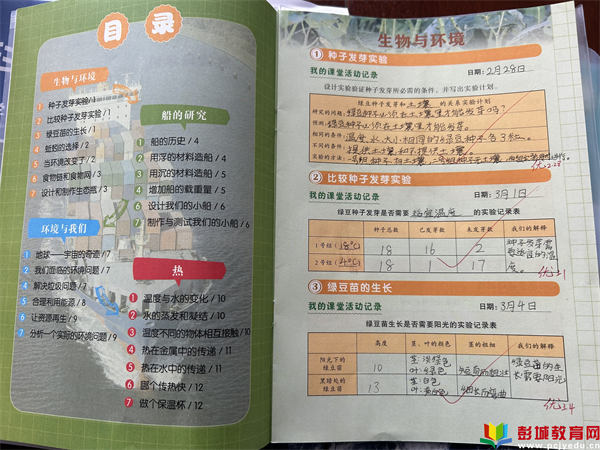 目录
生物与环境
1 种子发芽实验/1
2 比较种子发芽实验/1
3 绿豆苗的生长/1
4 蚯蚓的选择/2
5 当环境改变了/2
6 食物链和食物网/3
7 设计和制作生态瓶/3
环境与我们
1 地球——宇宙的奇迹/7
2 我们面临的环境问题/7
3 解决垃圾问题/7
4 合理利用能源/8
5 让资源再生/9
6 分析一个实际的环境问题/9
船的研究
1 船的历史/4
2 用浮的材料造船/4
3 用沉的材料造船/4
4 增加船的载重量/5
5 设计我们的小船/6
6 制作与测试我们的小船/6
热
1 温度与水的变化/10
2 水的蒸发和凝结/10
3 温度不同的物体相互接触/10
4 热在金属中的传递/11
5 热在水中的传递/11
6 哪个传热快/12
7 做个保温杯/12
生物与环境
1 种子发芽实验
我的课堂活动记录 日期：2月28日
设计实验验证种子发芽所必需的条件，并写出实验计划。
绿豆种子发芽和土壤的关系实验计划
研究的问题：绿豆种子必须在土壤里才能发芽吗？
绿豆种子必须在土壤里才能发芽。
相同的条件：温度、水、大小相同的绿豆种子各3粒。
不同的条件：提供土壤和不提供土壤
实验的方法：
2 比较种子发芽实验
我的课堂活动记录 日期：3月1日
绿豆种子发芽是否需要适宜温度的实验记录表
种子总数 已发芽数 未发芽数 我们的解释
1号组（18℃） 18 16 2 种子发芽需要适宜的温度。
2号组（4℃） 18 1 17
3 绿豆苗的生长
我的课堂活动记录 日期：3月4日
绿豆苗生长是否需要阳光的实验记录表
高度 茎、叶的颜色 茎的粗细 我们的解释
阳光下的绿豆苗 10 茎：浅绿色 叶：绿色 短而粗壮 绿豆苗的生长需要阳光
黑暗处的绿豆苗 13 茎：白色 叶：黄绿色 细长而弯曲
优3.4
彭城教育网
www.pcjyedu.cn